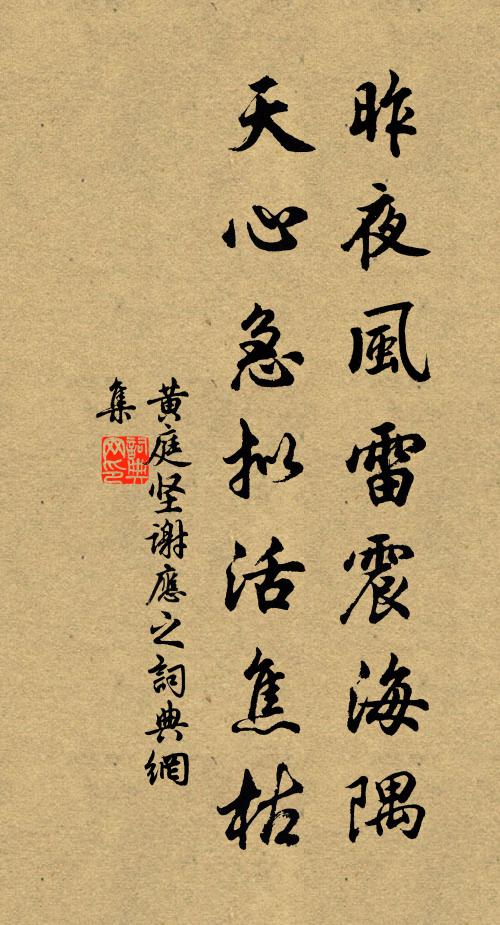 昨夜風雷震海隅
天心急拟活焦枯
黄庭坚谢應之詞典網
集
詞典网印